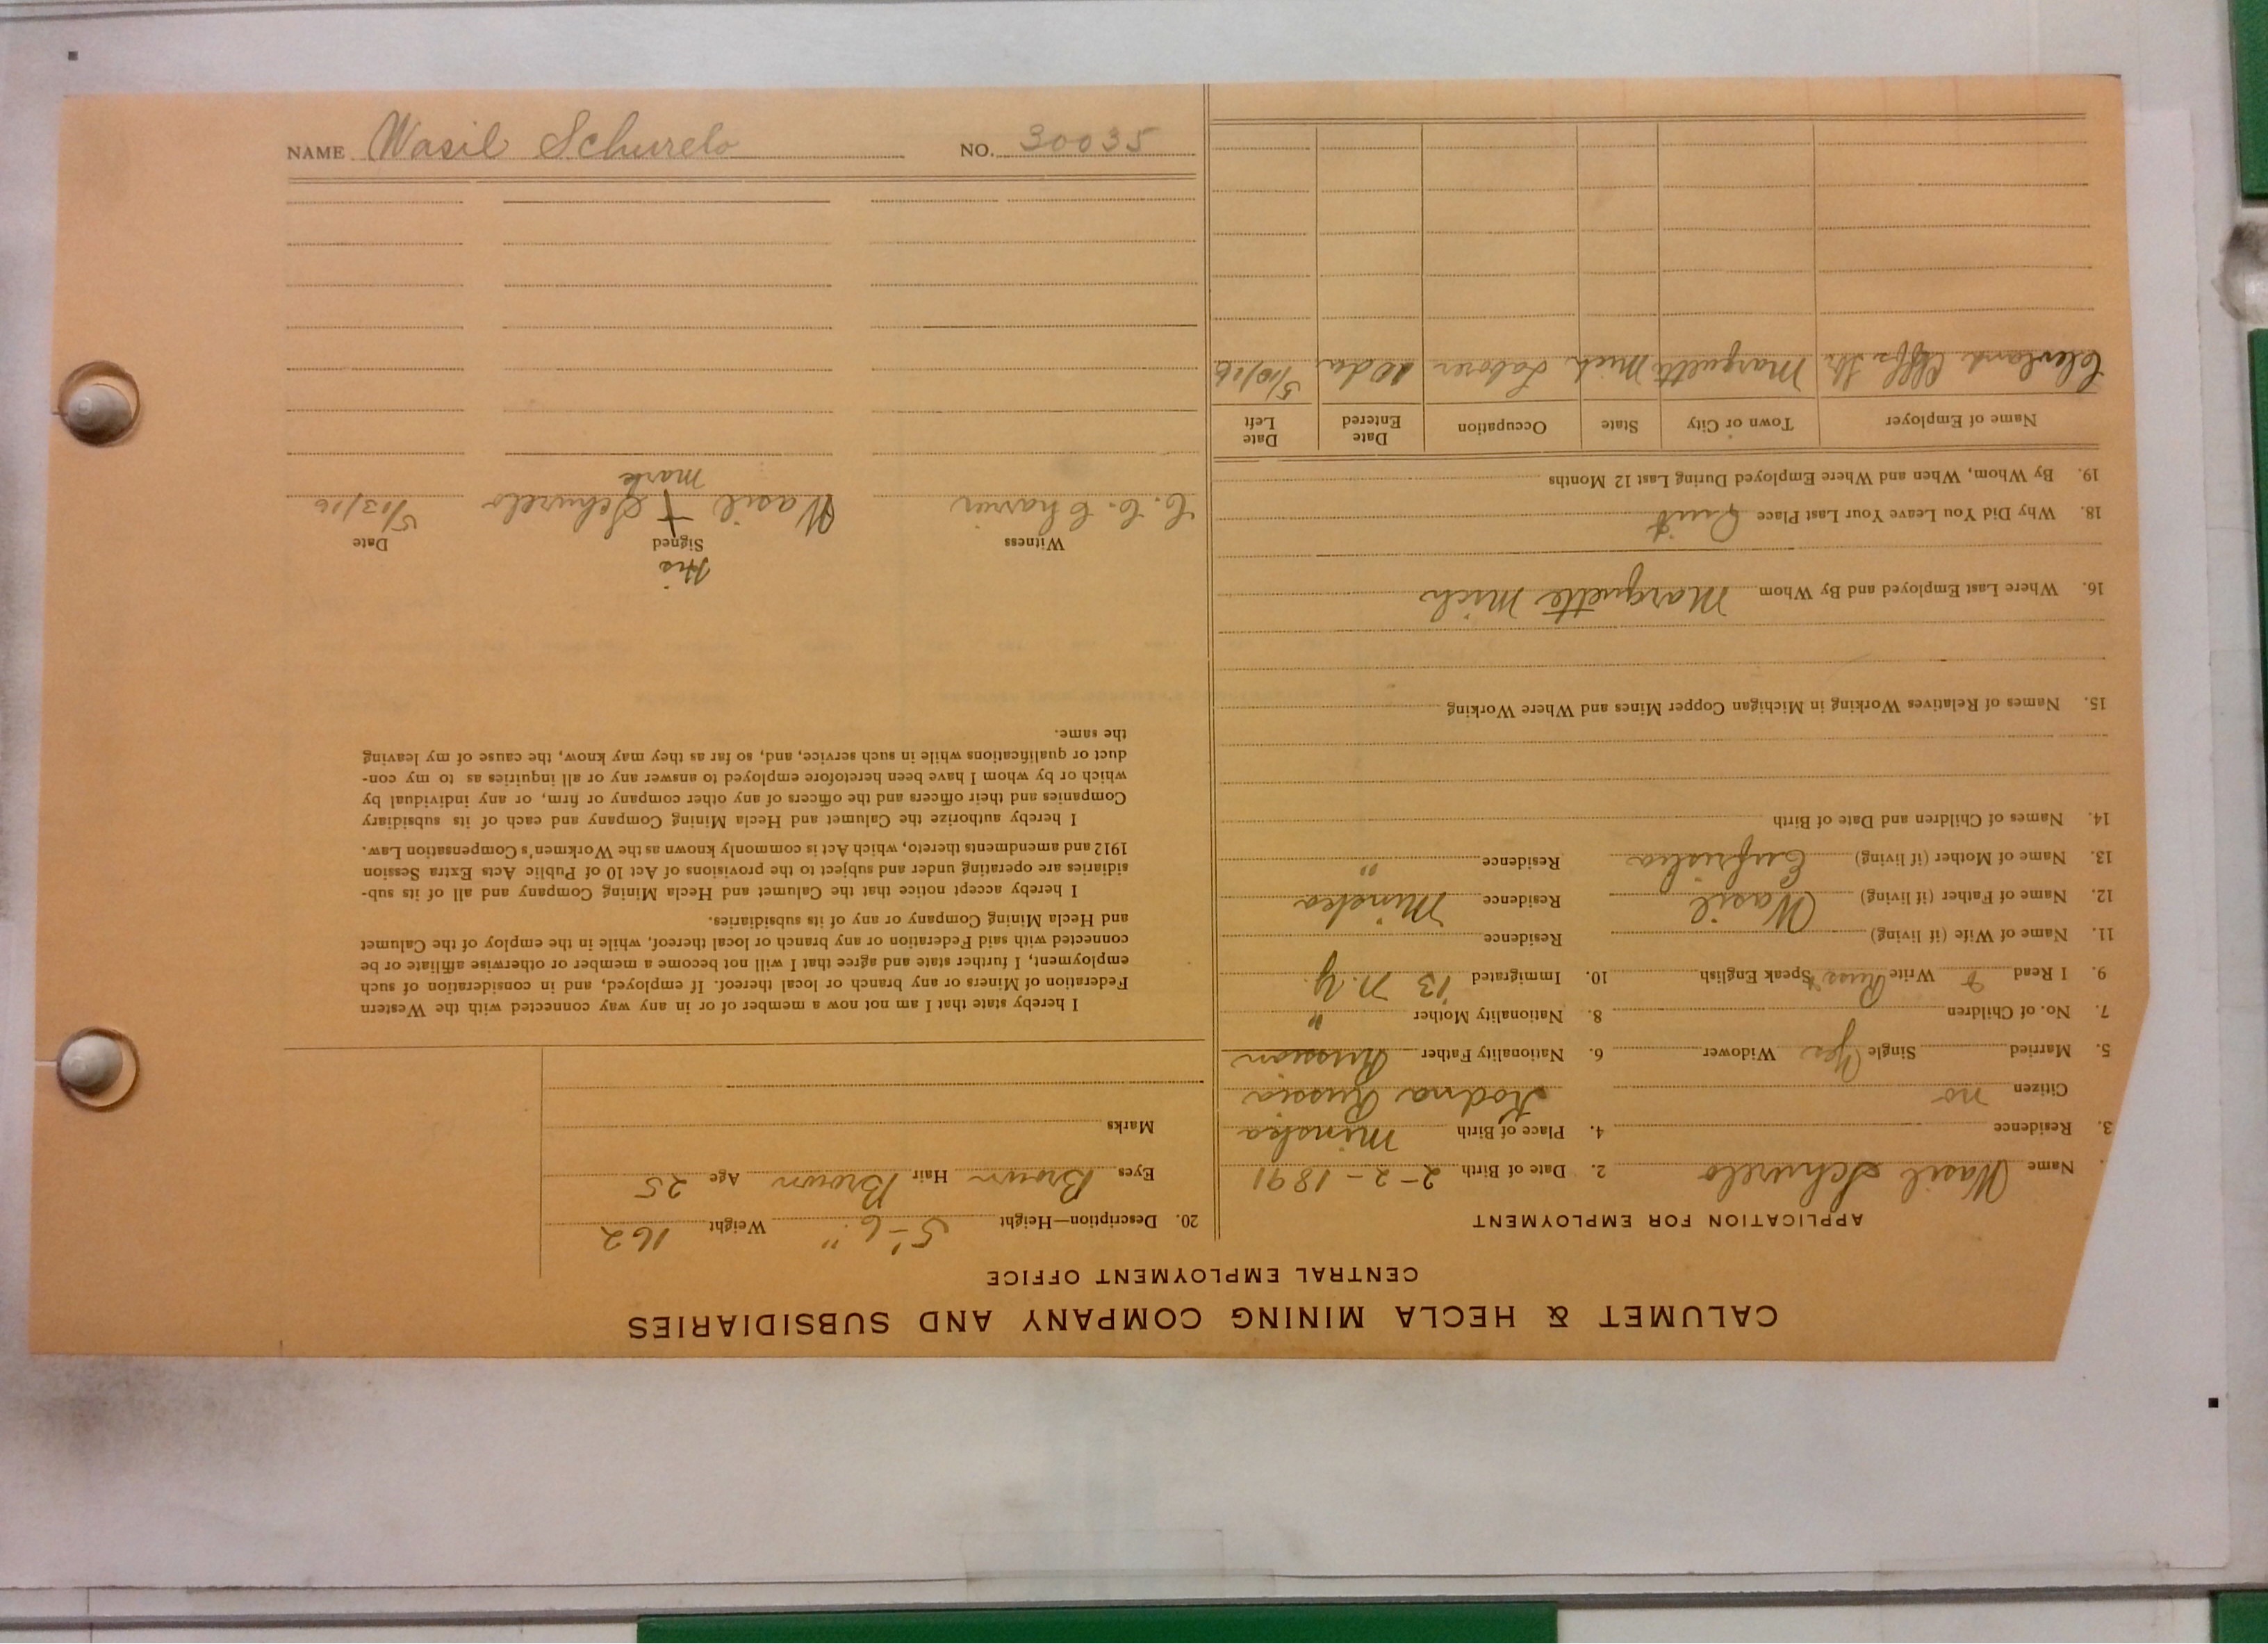 NAME Wasil Schurelo NO. 30035
CALUMET & HECLA MINING COMPANY AND SUBSIDIARIES
CENTRAL EMPLOYMENT OFFICE
APPLICATION FOR EMPLOYMENT
Name Wasil Schurelo 2. Date of Birth 2-2-1891
3. Residence 4. Place of Birth Minska
Citizen no Kodna Russia
5. Married Single Yes Widower 6. Nationality Father Russian
7. No. of Children 8. Nationality Mother "
9. I Read & Write Russ Speak English 10. Immigrated '13 N.Y.
11. Name of Wife (if living) Residence
12. Name of Father (if living) Wasil Residence Minska
13. Name of Mother (if living) Residence "
14. Names of Children and Date of Birth
15. Names of Relatives Working in Michigan Copper Mines and Where Working
16. Where Last Employed and By Whom Marquette Mich
18. Why Did You Leave Your Last Place Quit
19. By Whom, When and Where Employed During Last 12 Months
Name of Employer Town or City State Occupation Date Entered Date Left
Cleveland Cliffs Marquette Mich Laborer 10 da 5/10/16
20. Description—Height 5'-6" Weight 162
Eyes Brown Hair Brown Age 25
Marks
I hereby state that I am not now a member of or in any way connected with the Western
Federation of Miners or any branch or local thereof. If employed, and in consideration of such
employment, I further state and agree that I will not become a member or otherwise affiliate or be
connected with said Federation or any branch or local thereof, while in the employ of the Calumet
and Hecla Mining Company or any of its subsidiaries.
I hereby accept notice that the Calumet and Hecla Mining Company and all of its sub-
sidiaries are operating under and subject to the provisions of Act 10 of Public Acts Extra Session
1912 and amendments thereto, which Act is commonly known as the Workmen's Compensation Law.
I hereby authorize the Calumet and Hecla Mining Company and each of its subsidiary
Companies and their officers and the officers of any other company or firm, or any individual by
which or by whom I have been heretofore employed to answer any or all inquiries as to my con-
duct or qualifications while in such service, and, so far as they may know, the cause of my leaving
the same.
His
Witness Signed Date
C. C. Wasil + Schurelo 5/13/16
mark